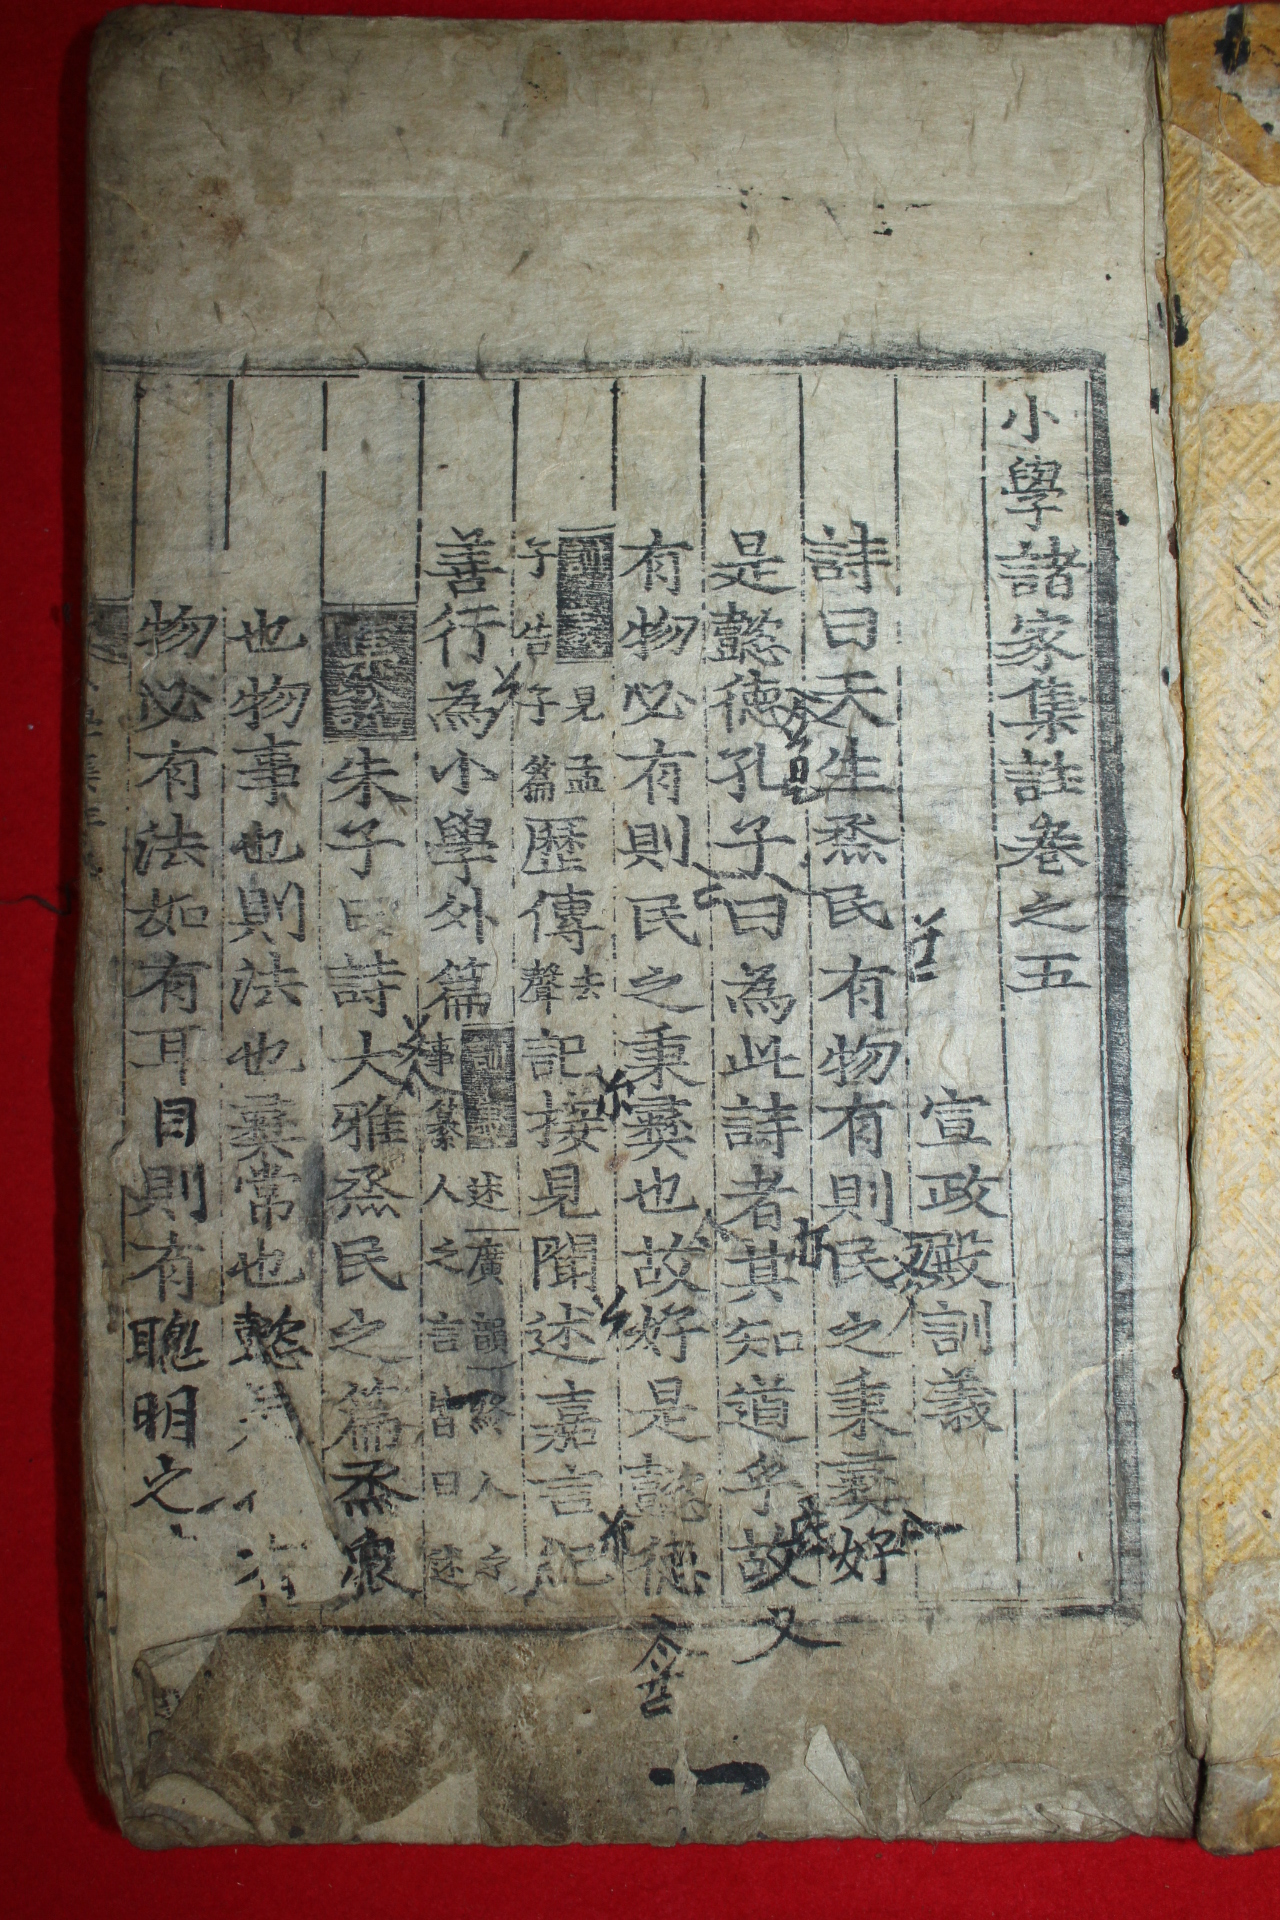 小學諸家集註卷之五
宣政殿訓義
詩曰天生烝民有物有則民之秉彛好
是懿德孔子曰為此詩者其知道乎故
有物必有則民之秉彛也故好是懿德
訓義 見孟
子告子篇
歷傳
去
聲
記接見聞述嘉言紀
善行為小學外篇
訓義 述廣韻終人之
事纂人之言皆曰述
集說
朱子曰詩大雅烝民之篇烝衆
也物事也則法也彛常也懿
物必有法如有耳目則有聰明之